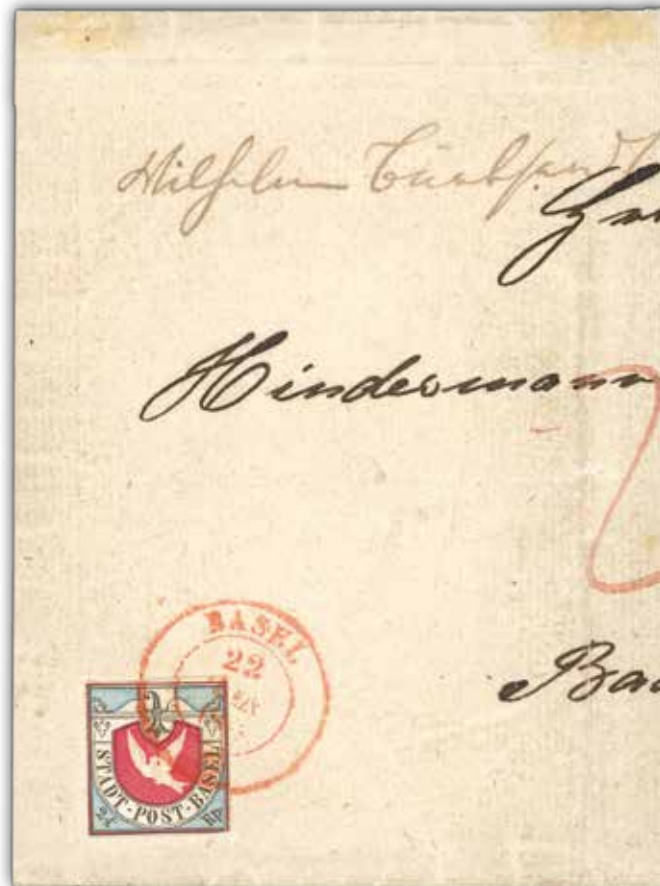 Wilhelm
Hindermann
Ba
BASEL
22
STADT-POST-BASEL
2½ Rp.